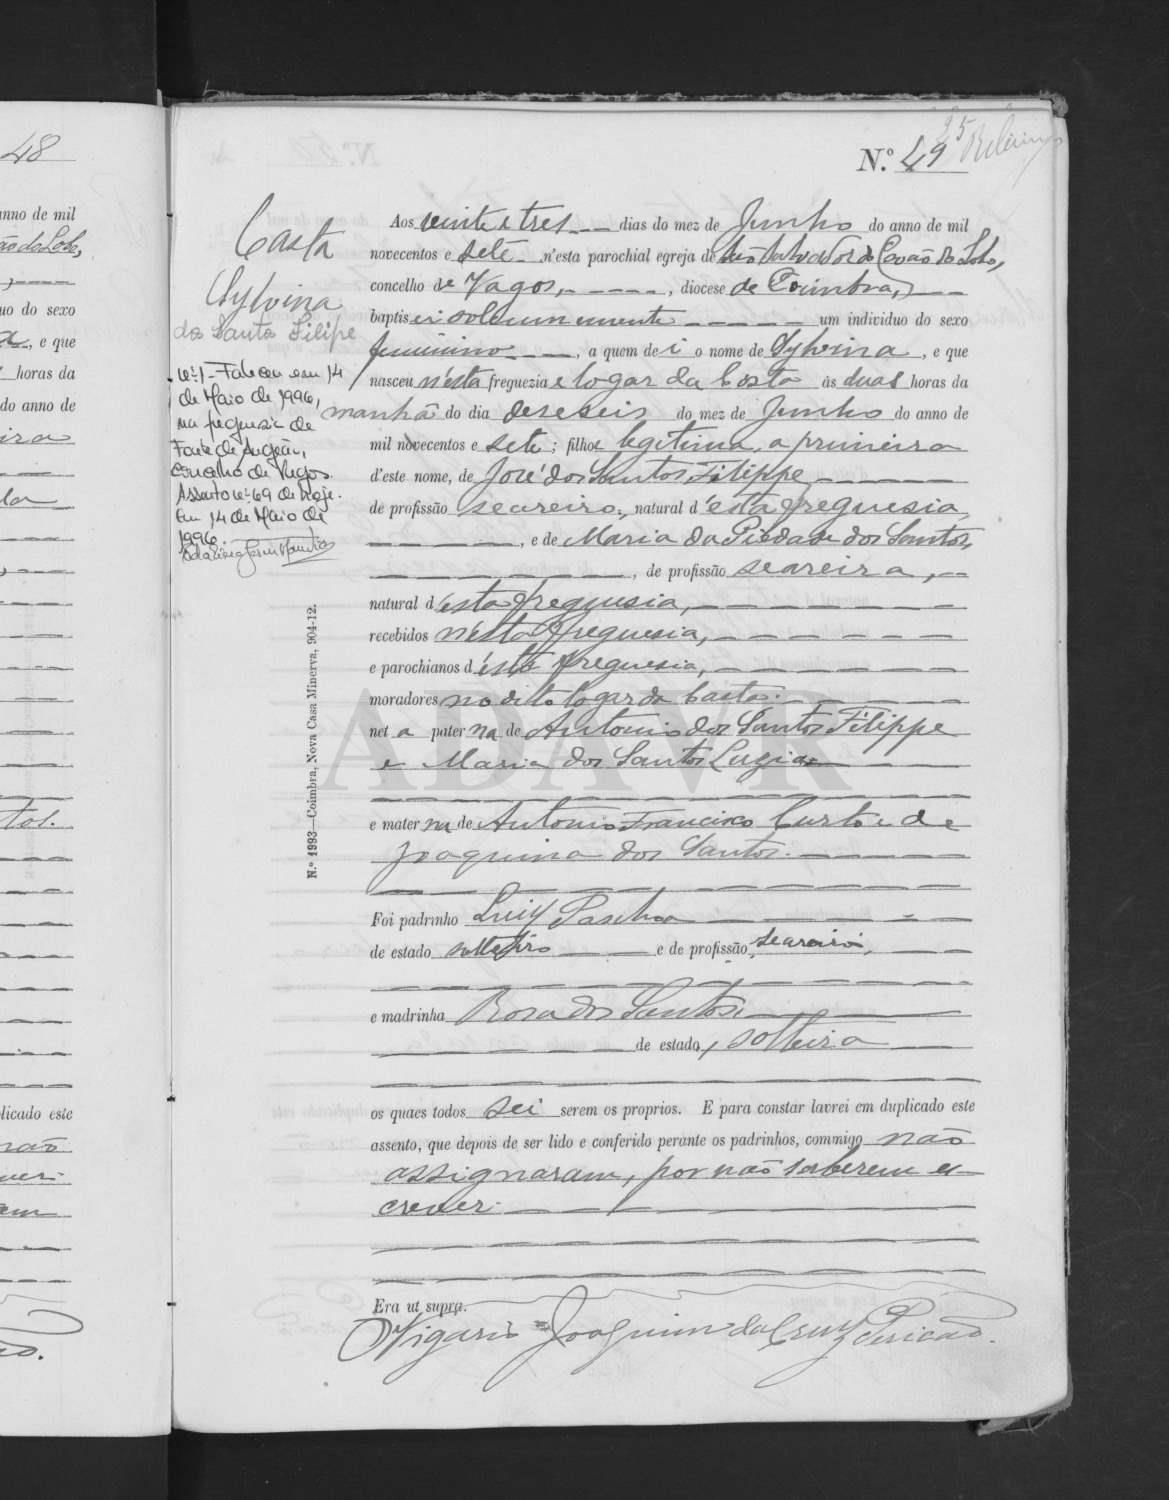 48
N.º 49
Casta
Sylvina
dos Santos Filipe
Nº1 - Faleceu em 14
de Maio de 1996,
na freguesia de
Fonte de Angeão,
Concelho de Vagos.
Assento nº 69 de hoje.
Em 14 de Maio de
1996.
Aos vinte e tres dias do mez de Junho do anno de mil
novecentos e sete n'esta parochial egreja de São Salvador do Covão do Lobo,
concelho de Vagos, diocese de Coimbra,
baptisei solemnemente um individuo do sexo
feminino, a quem dei o nome de Sylvina, e que
nasceu n'esta freguezia e logar da Costa ás duas horas da
manhã do dia deseseis do mez de Junho do anno de
mil novecentos e sete; filha legitima, a primeira
d'este nome, de José dos Santos Filippe,
de profissão seareiro, natural d'esta freguesia,
, e de Maria da Piedade dos Santos,
, de profissão seareira,
natural d'esta freguesia,
recebidos n'esta freguesia,
e parochianos d'esta freguesia,
moradores no dito logar da Casta:
neta paterna de Antonio dos Santos Filippe
e Maria dos Santos Luzia
e materna de Antonio Francisco Curto e de
Joaquina dos Santos.
Foi padrinho Luiz Paschoa
de estado solteiro e de profissão seareiro,
e madrinha Rosa dos Santos
de estado, solteira
os quaes todos sei serem os proprios. E para constar lavrei em duplicado este
assento, que depois de ser lido e conferido perante os padrinhos, commigo não
assignaram, por não saberem es-
crever.
Era ut supra.
O Vigario Joaquim da Cruz Pericão.
N.º 1993—Coimbra, Nova Casa Minerva, 904-12.
ADAVR